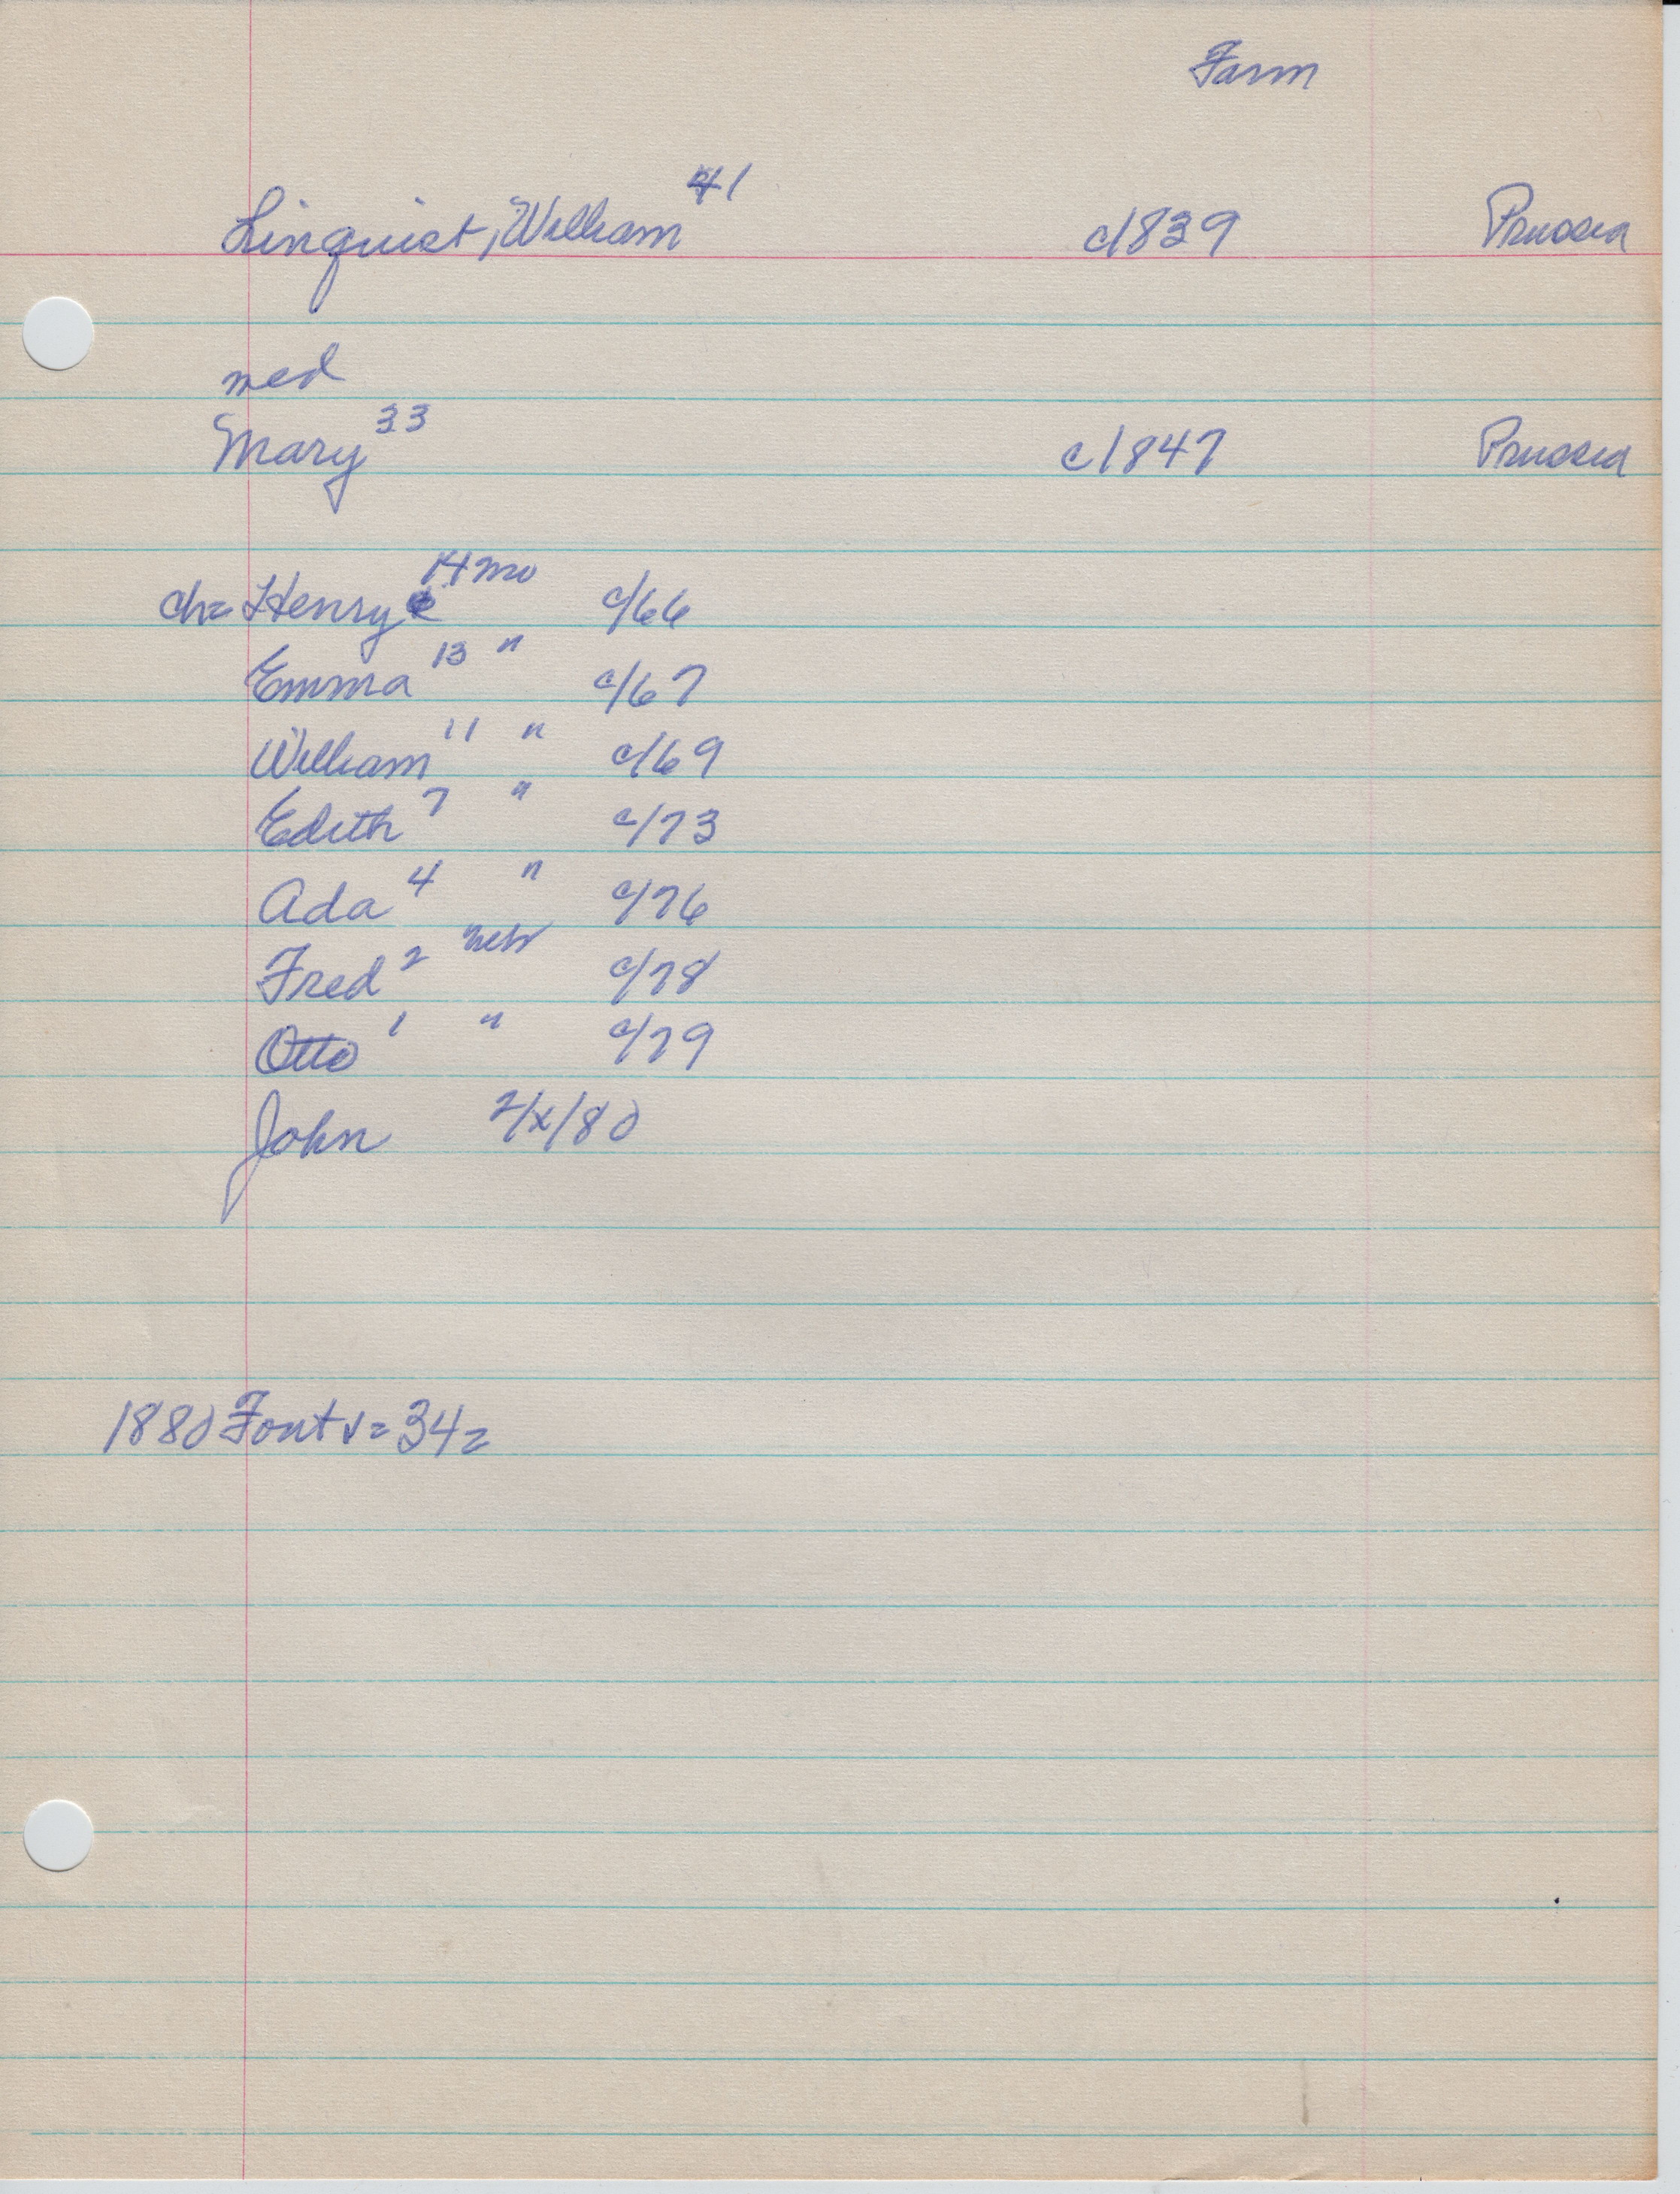 Farm
Linquist, William 41 c1839 Prussia
med
Mary 33 c1847 Prussia
ch= Henry 14 mo c/66
Emma 13 " c/67
William 11 " c/69
Edith 7 " c/73
Ada 4 " c/76
Fred 2 Neb c/78
Otto 1 " c/79
John 2/x/80
1880 Font v= 34=